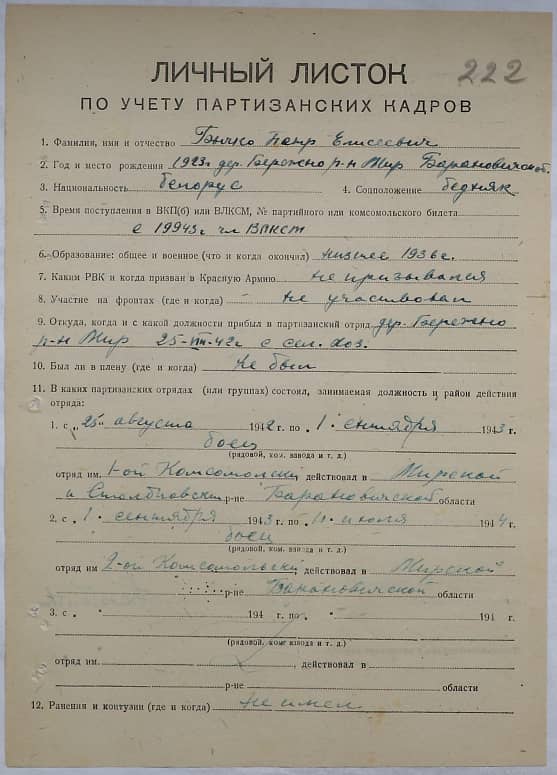 222
ЛИЧНЫЙ ЛИСТОК
ПО УЧЕТУ ПАРТИЗАНСКИХ КАДРОВ
1. Фамилия, имя и отчество Бычко Петр Елисеевич
2. Год и место рождения 1923г дер. Бережно р-н Мир Барановичской.
3. Национальность белорус 4. Соцположение бедняк
5. Время поступления в ВКП(б) или ВЛКСМ, № партийного или комсомольского билета
с 19943г чл ВЛКСМ
6. Образование: общее и военное (что и когда окончил) низшее 1936г.
7. Каким РВК и когда призван в Красную Армию не призывался
8. Участие на фронтах (где и когда) не участвовал
9. Откуда, когда и с какой должности прибыл в партизанский отряд дер. Бережно
р-н Мир 25-VIII-42г с сел. хоз.
10. Был ли в плену (где и когда) не был
11. В каких партизанских отрядах (или группах) состоял, занимаемая должность и район действия
отряда:
1. с „25" августа 1942г по „1" сентября 1943г.
боец
(рядовой, ком. взвода и т. д.)
отряд им. 1-ой Комсомольский действовал в Мирской
и Столбцовский р-не Барановичской области
2. с „1" сентября 1943г по июля 1944г.
боец
(рядовой, ком. взвода и т. д.)
отряд им 2-ой Комсомольский действовал в Мирской
р-не Барановичской области
3. с „ " 194 г. по „ " 194 г.
(рядовой, ком. взвода и т. д.)
отряд им. действовал в
р-не области
12. Ранения и контузии (где и когда) не имел